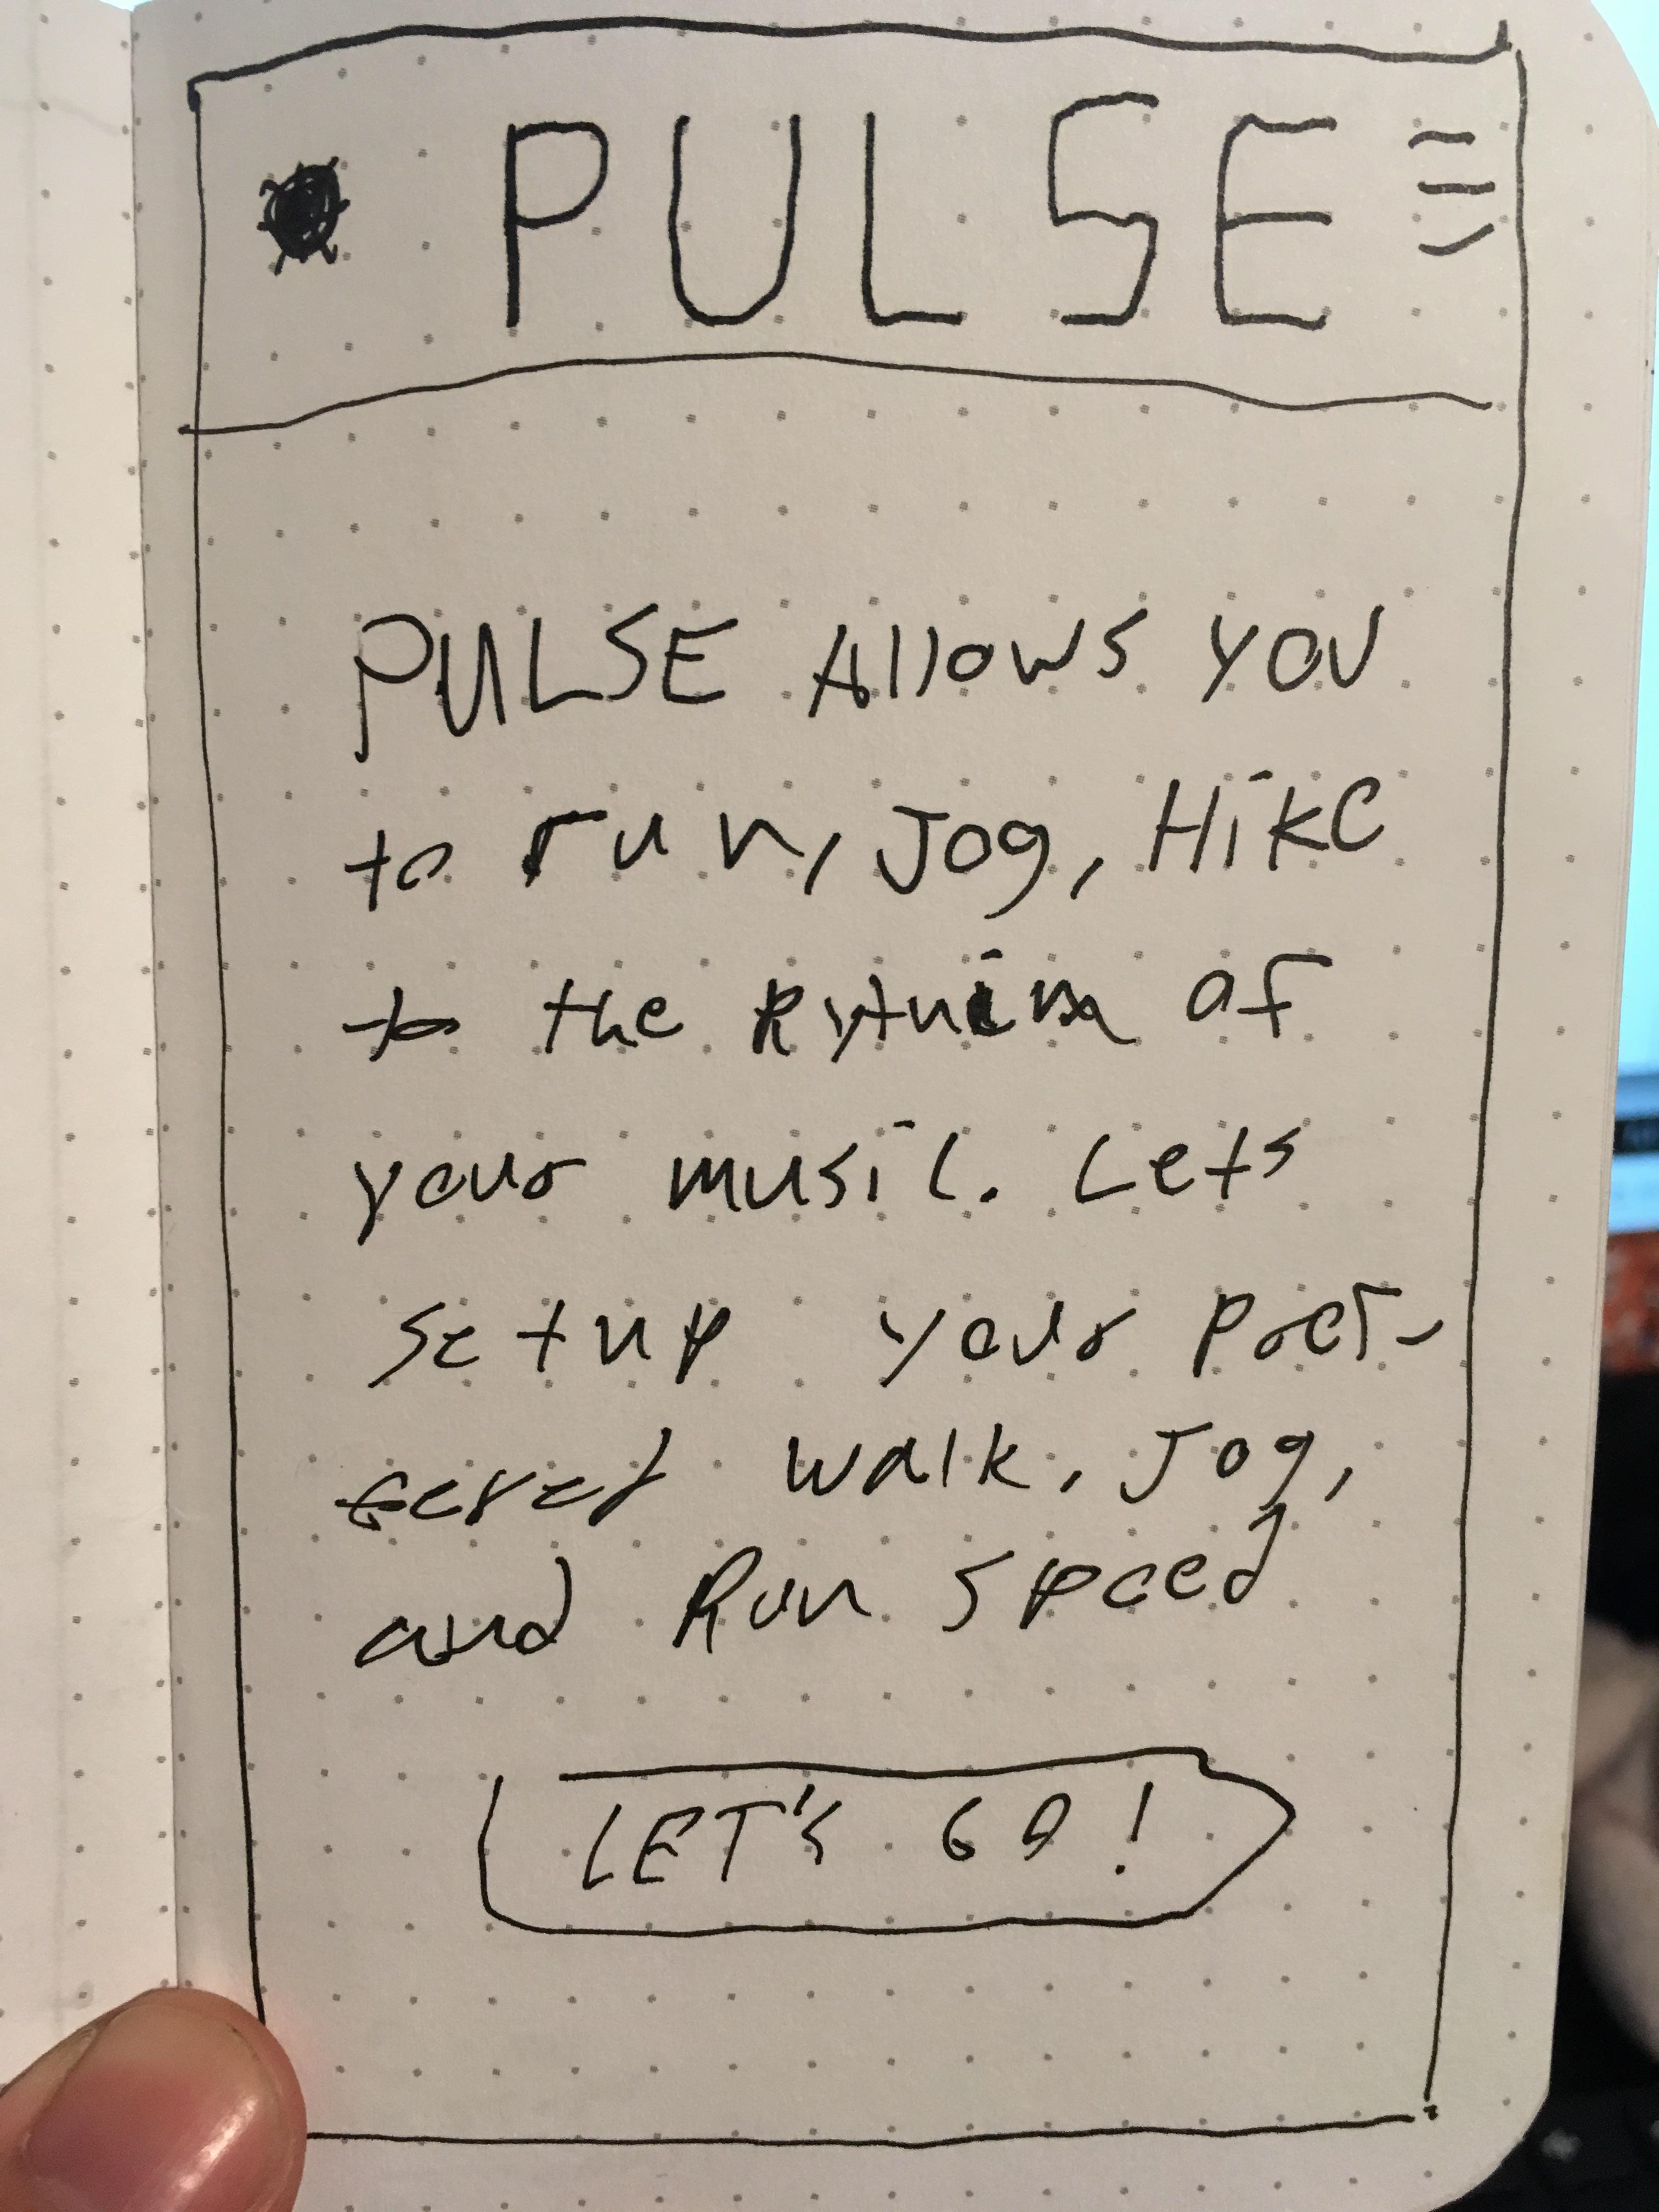 PULSE
PULSE Allows you
to run, Jog, Hike
to the of
your music. Lets
setup your
walk, Jog,
and Run speed
LET'S GO!